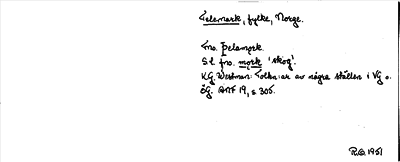 Telemark, fylke, Norge.
Fno. Þelamǫrk.
S.l. fno. mǫrk 'skog'.
K.G. Westman: Tolkn:ar av några ställen i VG o.
ÖG. ANF 19, s 305.
R.O. 1951